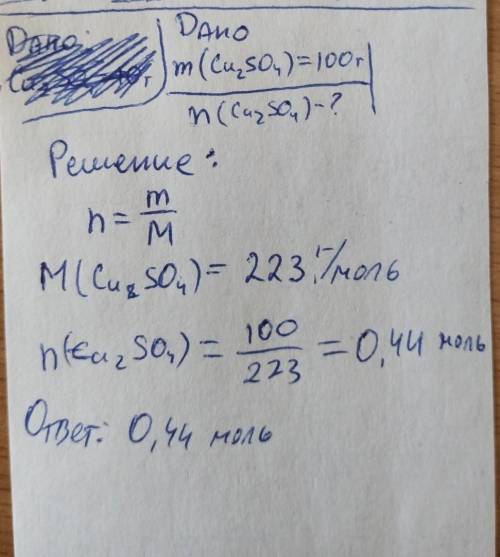 Дано
m(Cu₂SO₄)=100г
n(Cu₂SO₄)-?
Решение:
n = m/M
M(Cu₂SO₄) = 223 г/моль
n(Cu₂SO₄) = 100/223 = 0,44 моль
Ответ: 0,44 моль